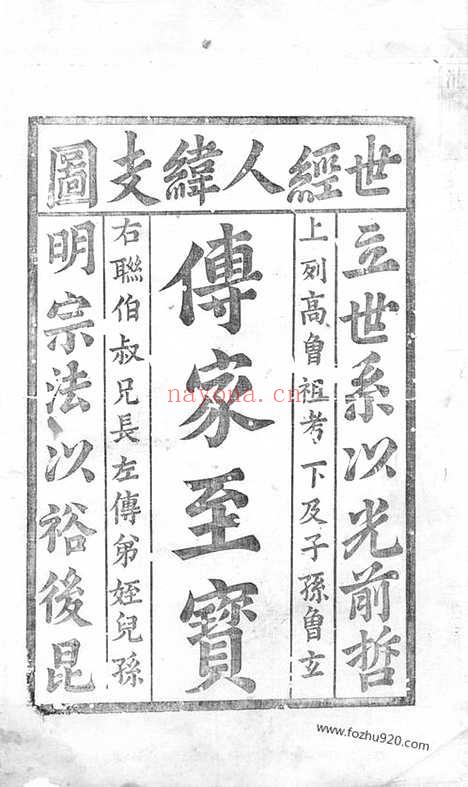 世經人緯支圖
立世系以光前哲
上列高魯祖考下及子孫魯玄
傳家至寶
右聯伯叔兄長左傳弟姪兒孫
明宗法以裕後昆
nayona.cn
www.fozhu920.com